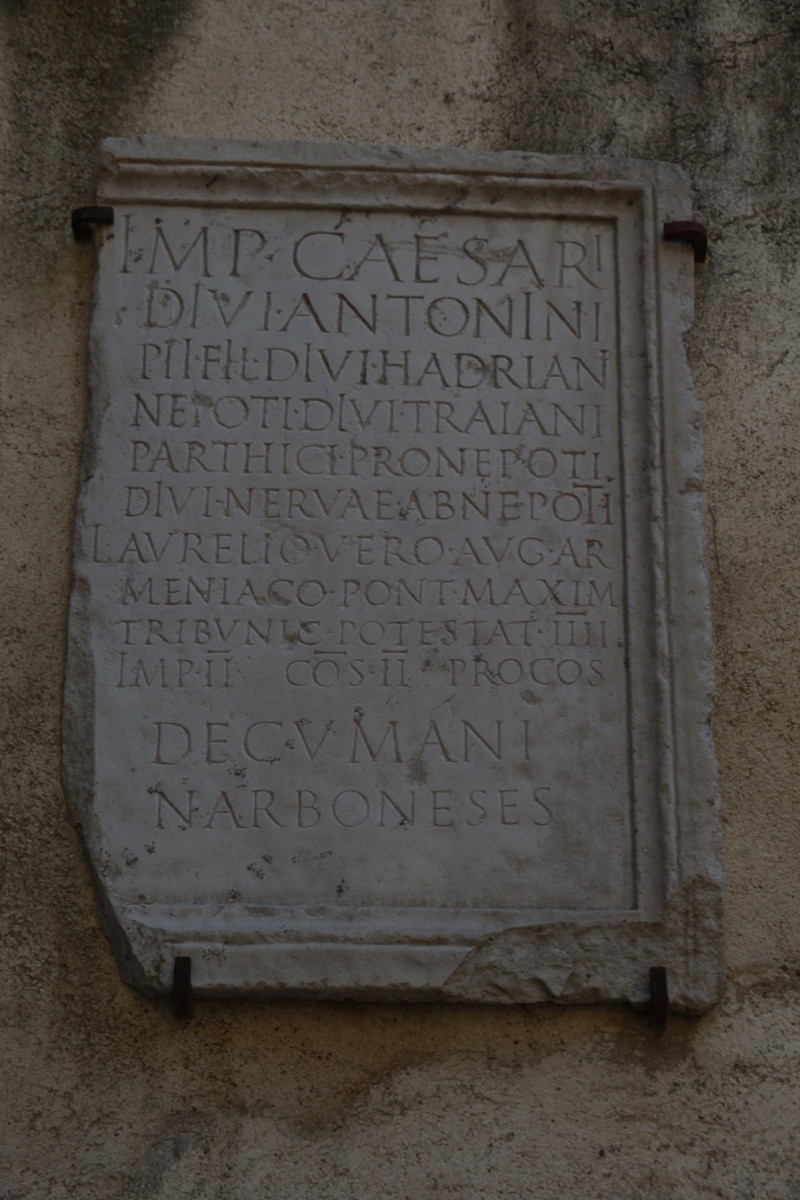 IMP·CAESARI
DIVI·ANTONINI
PII·FIL·DIVI·HADRIANI
NEPOTI·DIVI·TRAIANI
PARTHICI·PRONEPOTI
DIVI·NERVAE·ABNEPOTI
L AVRELIO·VERO·AVG·AR
MENIACO·PONT·MAXIM
TRIBVNIC·POTESTAT·IIII
IMP·II COS·II PROCOS
DECVMANI
NARBONESES